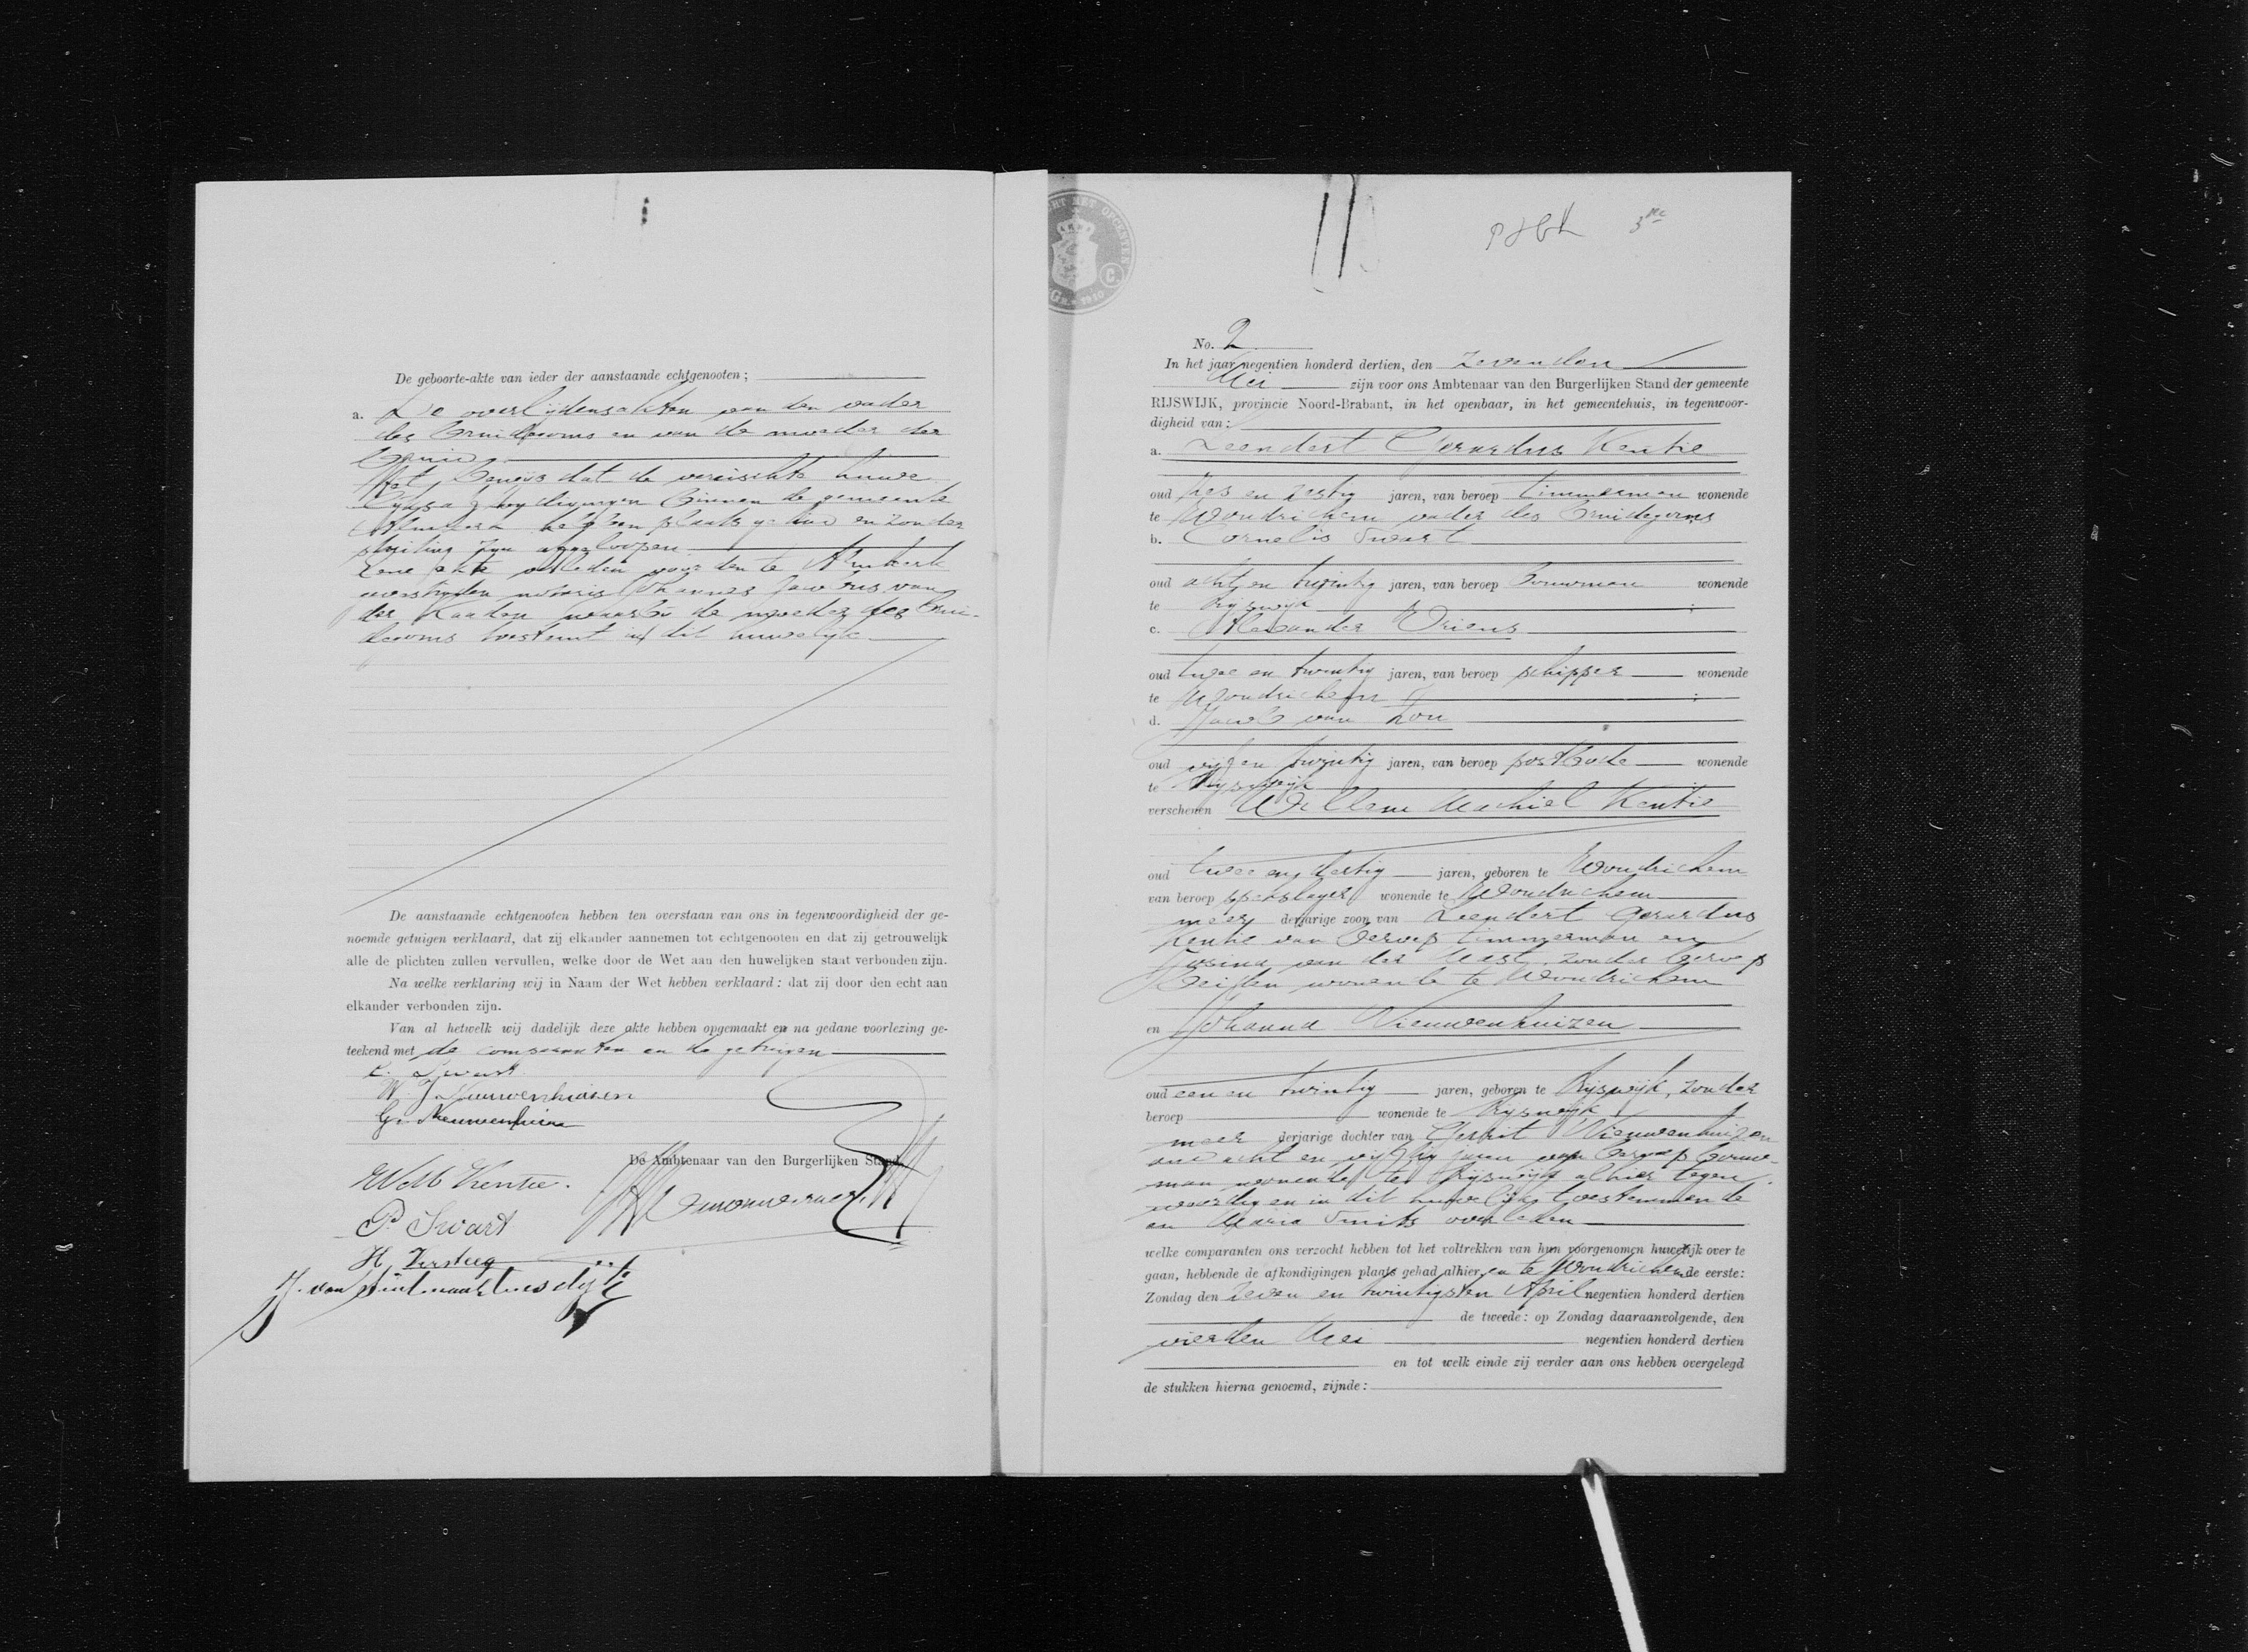 De geboorte-akte van ieder der aanstaande echtgenooten;
a. De overlijdensakten van den vader
des Bruidegoms en van de moeder der
Bruid
Het bewijs dat de vereischte huwe
binnen de gemeente
hebben plaats gehad en zonder
stuiting zijn afgeloopen
Eene akte verleden voor den te Almkerk
notaris Johannes Jacobus van
der Kaaden waarbij de moeder des brui-
degoms toestemt in dit huwelijk
De aanstaande echtgenooten hebben ten overstaan van ons in tegenwoordigheid der ge-
noemde getuigen verklaard, dat zij elkander aannemen tot echtgenooten en dat zij getrouwelijk
alle de plichten zullen vervullen, welke door de Wet aan den huwelijken staat verbonden zijn.
Na welke verklaring wij in Naam der Wet hebben verklaard: dat zij door den echt aan
elkander verbonden zijn.
Van al hetwelk wij dadelijk deze akte hebben opgemaakt en na gedane voorlezing ge-
teekend met de comparanten en de getuigen
C. Swart
W. J. Nieuwenhuizen
G. Nieuwenhuizen
De Ambtenaar van den Burgerlijken Stand,
P. Swart
H. Versteeg
J. van
HT HET OPCENTEN
C.
1910
3de
No. 2
In het jaar negentien honderd dertien, den zevenden
Mei zijn voor ons Ambtenaar van den Burgerlijken Stand der gemeente
RIJSWIJK, provincie Noord-Brabant, in het openbaar, in het gemeentehuis, in tegenwoor-
digheid van:
a. Leendert Gerardus Kentie
oud zes en zestig jaren, van beroep timmerman wonende
te Woudrichem vader des Bruidegoms
b. Cornelis Swart
oud acht en twintig jaren, van beroep bouwman wonende
te Rijswijk ;
c. Alexander Vriens
oud twee en twintig jaren, van beroep schipper wonende
te Woudrichem ;
d. Jacob van Zon
oud vijf en twintig jaren, van beroep postbode wonende
te Rijswijk
verschenen Willem Machiel Kentie
oud twee en dertig jaren, geboren te Woudrichem
van beroep spekslager wonende te Woudrichem
meer derjarige zoon van Leendert Gerardus
Kentie van beroep timmerman en
Josina van der Mast, zonder beroep
beiden wonende te Woudrichem
en Johanna Nieuwenhuizen
oud een en twintig jaren, geboren te Rijswijk, zonder
beroep wonende te Rijswijk
meer derjarige dochter van Gerrit Nieuwenhuizen
oud acht en vijftig jaren van beroep bouw-
man wonende te Rijswijk alhier tegen
woordig en in dit huwelijk toestemmende
en Maria Smits overleden
welke comparanten ons verzocht hebben tot het voltrekken van hun voorgenomen huwelijk over te
gaan, hebbende de afkondigingen plaats gehad alhier en te Woudrichem de eerste:
Zondag den zeven en twintigsten April negentien honderd dertien
de tweede: op Zondag daaraanvolgende, den
vierden Mei negentien honderd dertien
en tot welk einde zij verder aan ons hebben overgelegd
de stukken hierna genoemd, zijnde: